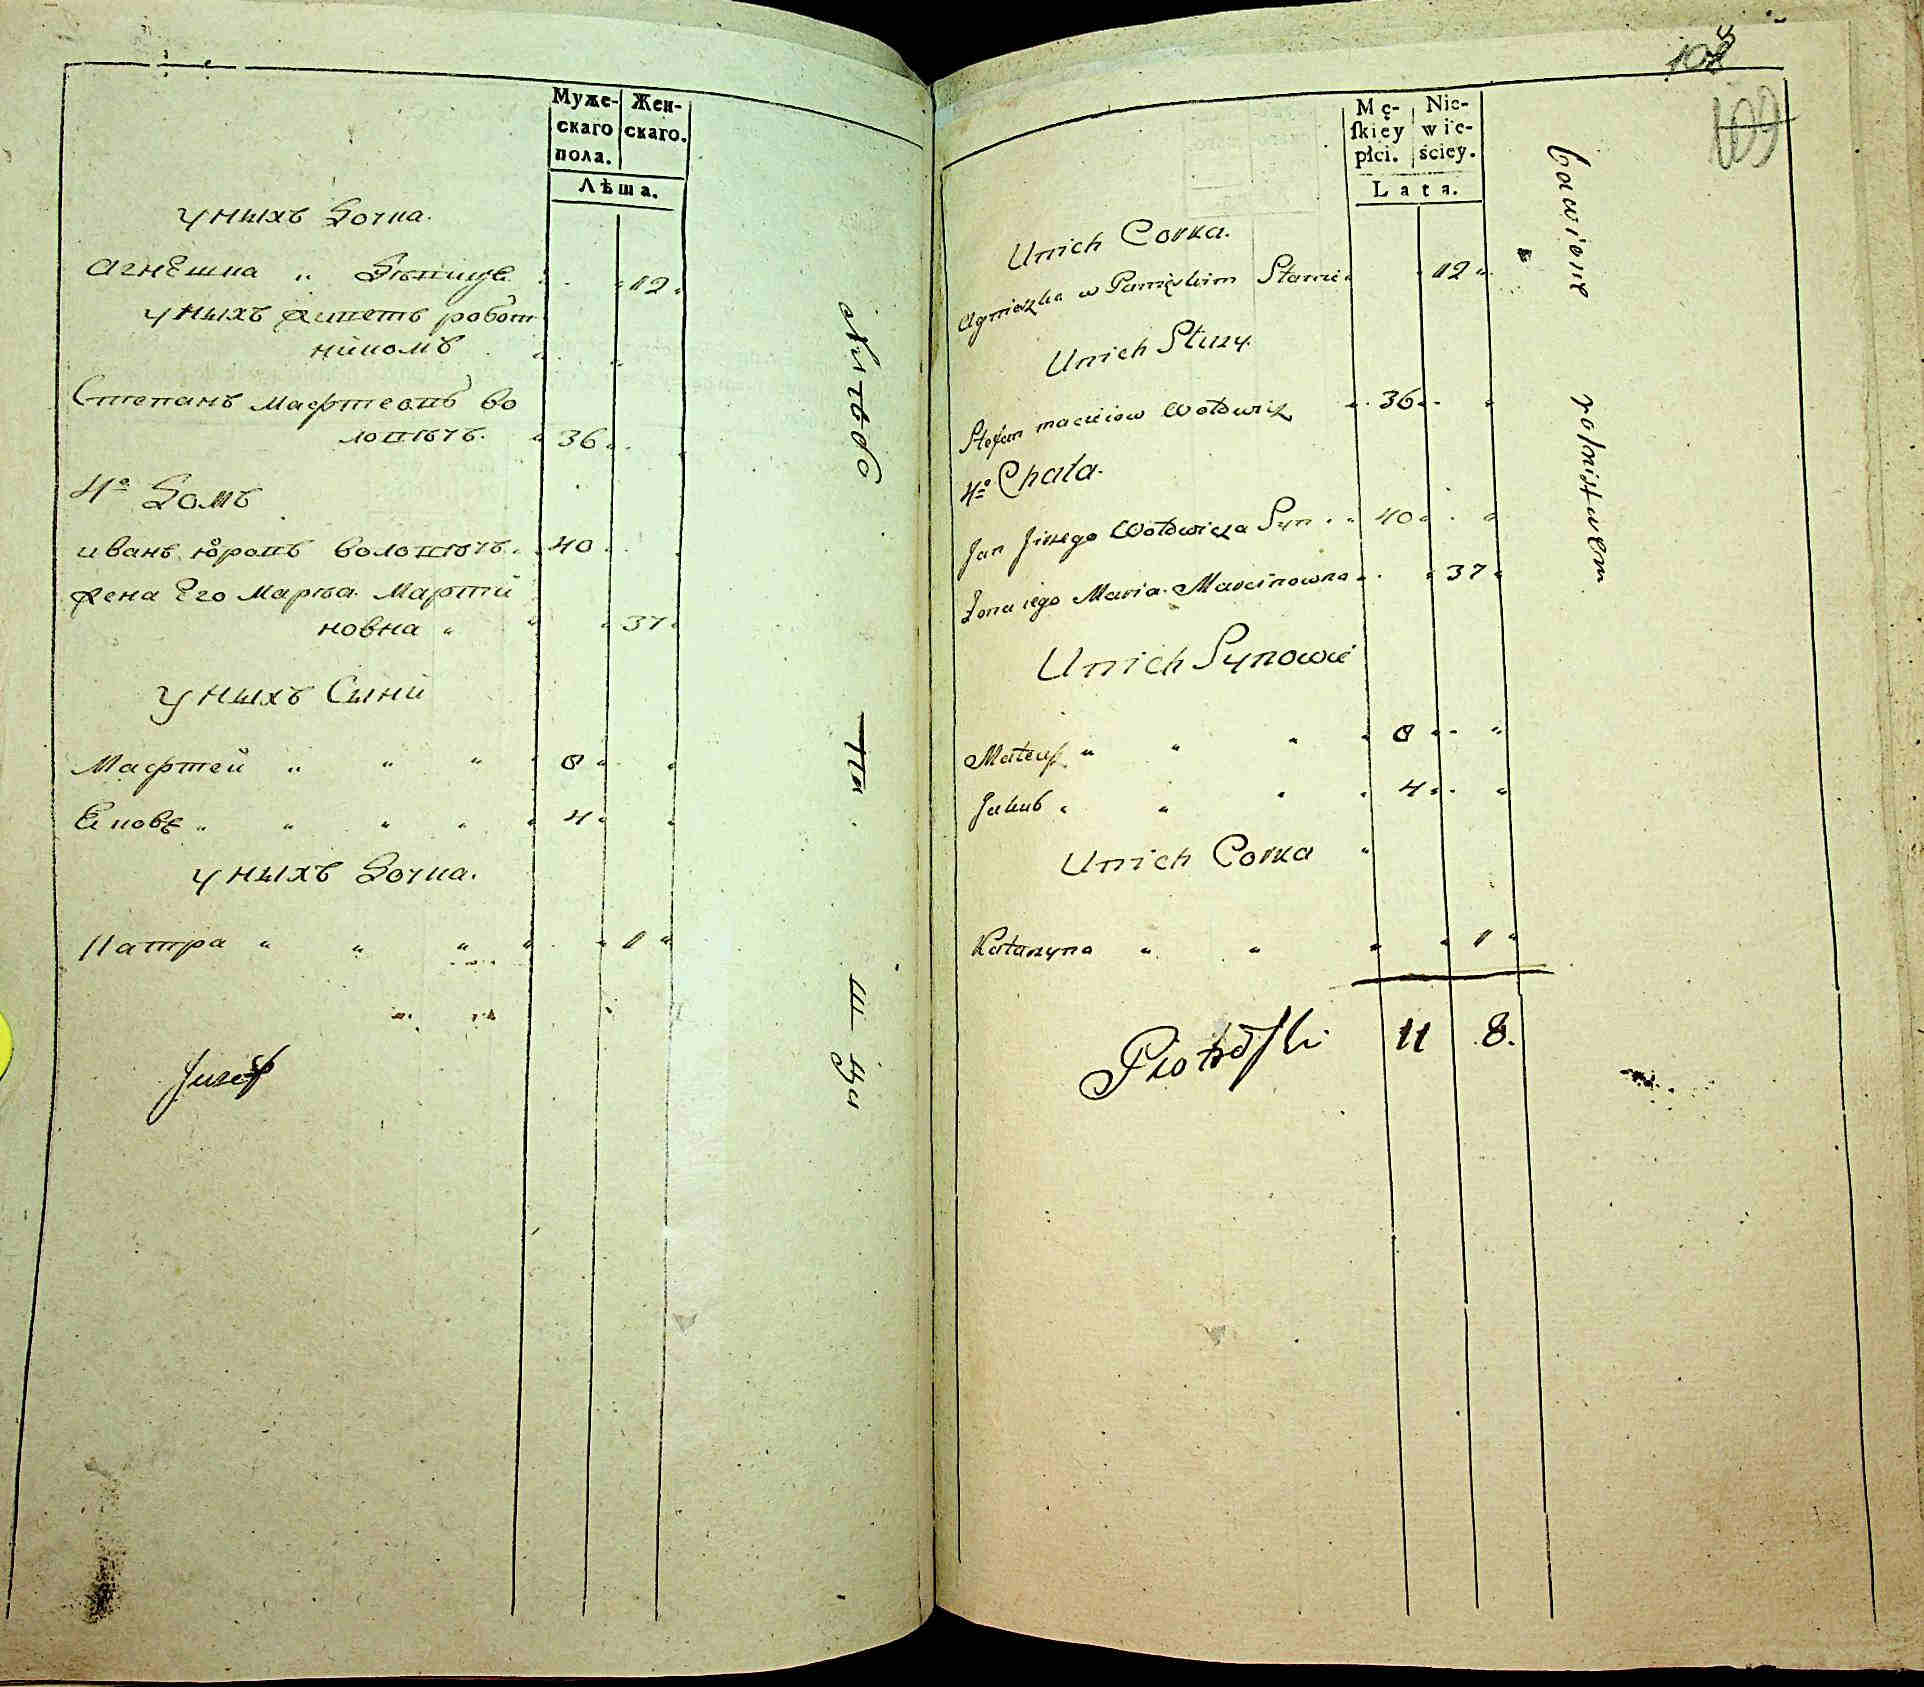 Муже-
скаго
пола.
Жен-
скаго.
Лѣта.
у ныхъ Дочка.
Агнѣшка " " 12
у ныхъ живетъ робот
никомъ
Степанъ Мафтеовъ Во
ловичъ. 36
4º Домъ
иванъ юровъ воловичъ. 40
жена Его Марья Марти
новна " 37
у ныхъ Сыни
Мафтей " " " 8
" " " " 4
у ныхъ Дочка.
Катра " " " 1
Jusef
102
109
Mę-
ſkiey
płci.
Nie-
wie-
ściey.
Lata.
Unich Corka.
Agnieszka w Panieńkim Stanie 12
Unich Słuzy.
Stefan maciejow Wołowicz 36
4º Chata.
Jan Jurego Wołowicza Syn 40
Zona iego Maria Marcinowna 37
Unich Synowie
Mateusz " " " 8
Jakub " " " 4
Unich Corka "
Katarzyna " " 1
Piotrowski 11 8.
bawione rolnistwem